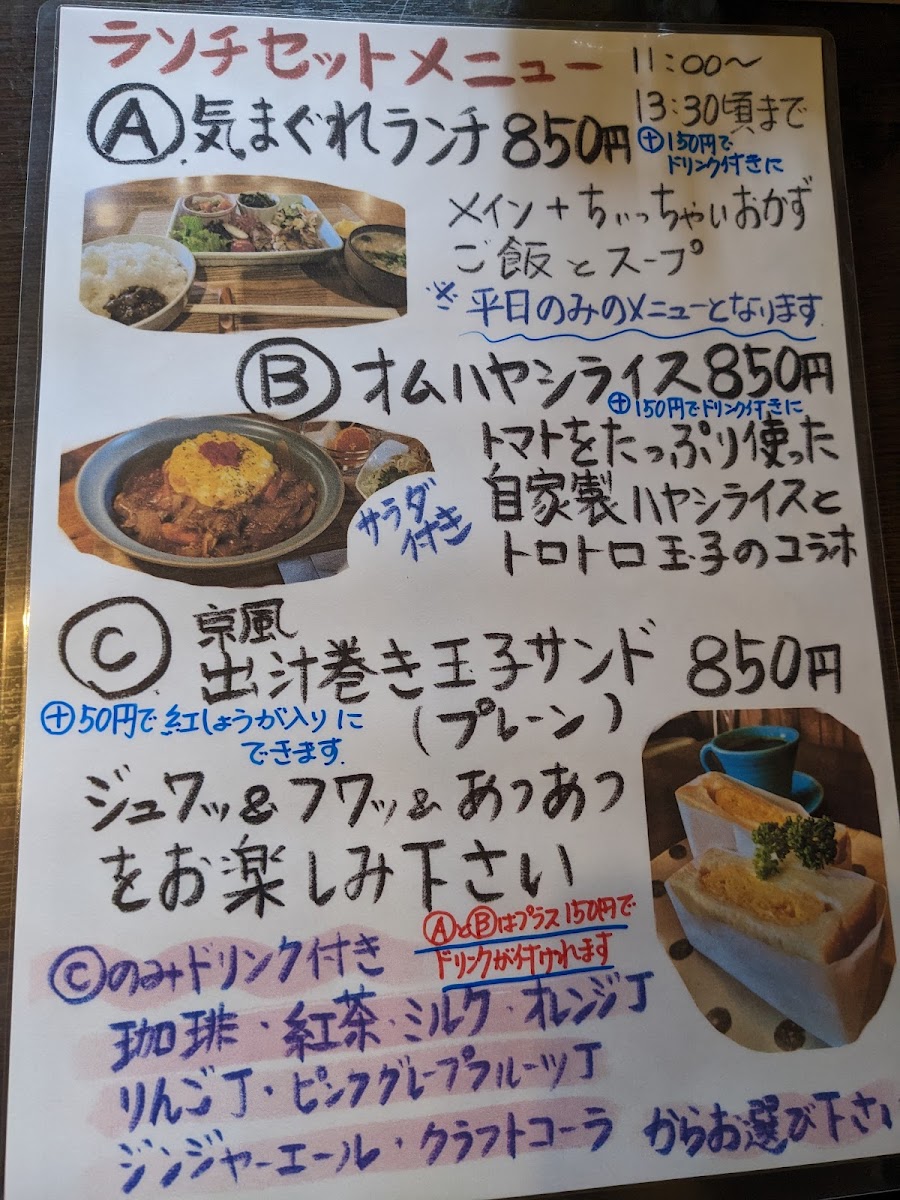 ランチセットメニュー 11:00〜
13:30頃まで
Ⓐ気まぐれランチ 850円
⊕150円で
ドリンク付きに
メイン+ちぃっちゃいおかず
ご飯とスープ
※平日のみのメニューとなります
Ⓑオムハヤシライス850円
⊕150円でドリンク付きに
トマトをたっぷり使った
自家製ハヤシライスと
トロトロ玉子のコラボ
サラダ
付き
Ⓒ京風
出汁巻き玉子サンド 850円
(プレーン)
⊕50円で紅しょうが入りに
できます
ジュワッ&フワッ&あつあつ
をお楽しみ下さい
ⒶとⒷはプラス150円で
ドリンクが付けれます
Ⓒのみドリンク付き
珈琲・紅茶・ミルク・オレンジJ
りんごJ・ピンクグレープフルーツJ
ジンジャーエール・クラフトコーラ からお選び下さい